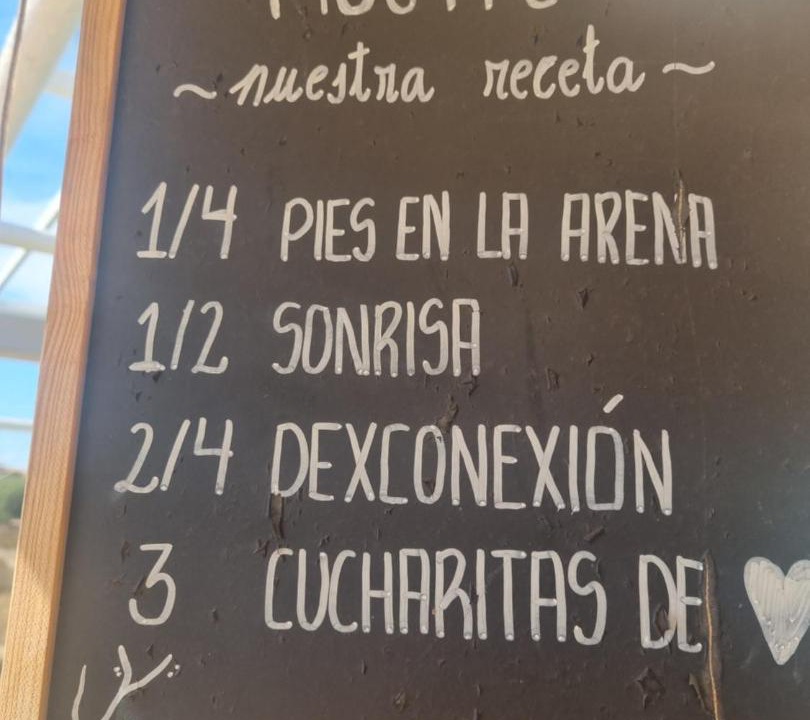 ~ nuestra receta ~
1/4 PIES EN LA ARENA
1/2 SONRISA
2/4 DEXCONEXIÓN
3 CUCHARITAS DE